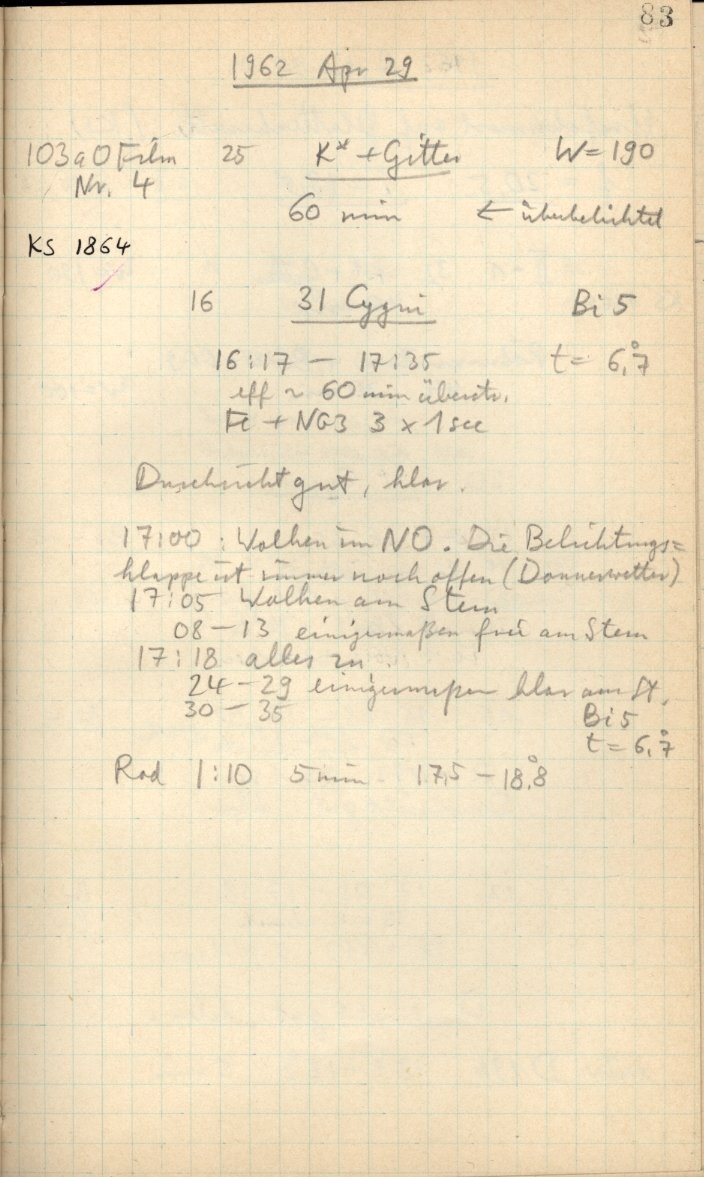 83
1962 Apr 29
103aO Film 25 K* + Gitter W = 190
Nr. 4
60 min ← überbelichtet
KS 1864
16 31 Cygni Bi 5
16:17 – 17:35 t = 6,°7
eff ~ 60 min überstr.
Fe + NG3 3 x 1 sec
Durchsicht gut, klar.
17:00 : Wolken im NO. Die Belichtungs=
klappe ist immer noch offen (Donnerwetter)
17:05 Wolken am Stern
08 – 13 einigermaßen frei am Stern
17:18 alles zu.
24 – 29 einigermaßen klar am St.
30 – 35 Bi 5
t = 6,°7
Rad 1:10 5 min 17,5 – 18,°8